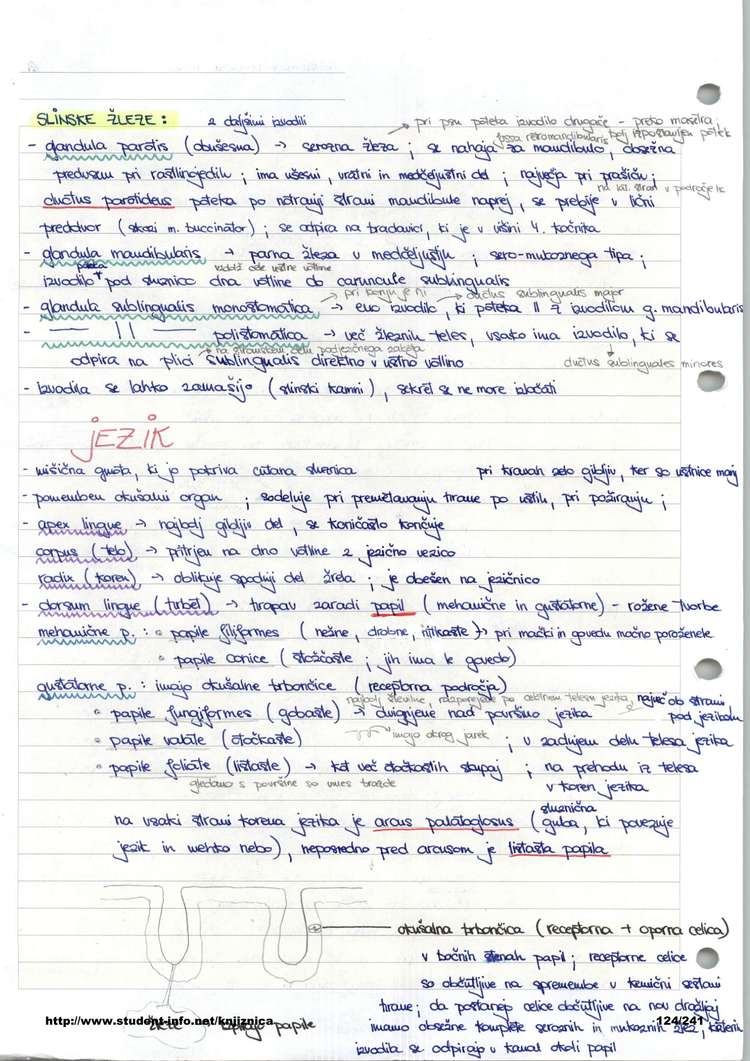 SLINSKE ŽLEZE: z daljšimi izvodili
pri psu poteka izvodilo drugače - preko masetra;
fossa retromandibularis bolj izpostavljen potek
- glandula parotis (obušesna) → serozna žleza ; se nahaja za mandibulo, obsežna
predvsem pri rastlinojedih ; ima ušesni, vratni in medčeljustni del ; največja pri prašiču ;
na lat. stran v področje lic
ductus parotideus poteka po notranji strani mandibule naprej, se prebije v lični
preddvor (skozi m. buccinator) ; se odpira na bradavici, ki je v višini 4. kočnika
- glandula mandibularis → parna žleza v medčeljustju ; sero-mukoznega tipa ;
poteka vzdolž cele ustne votline
izvodilo + pod sluznico dna votline do caruncule sublingualis
pri konju je ni → ductus sublingualis major
- glandula sublingualis monostomatica → eno izvodilo, ki poteka || z izvodilom g. mandibularis
- —— || —— polistomatica → več žleznih teles, vsako ima izvodilo, ki se
na stranskem delu podjezičnega zatega
odpira na plici sublingualis direktno v ustno votlino
ductus sublinguales minores
- Izvodila se lahko zamašijo (slinski kamni), sekret se ne more izločati
JEZIK
- mišična gmota, ki jo pokriva cutana sluznica pri kravah zelo gibljiv, ker so ustnice manj
- pomemben okušalni organ ; sodeluje pri premeščavanju hrane po ustih, pri požiranju ;
- apex lingue → najbolj gibljiv del, se koničasto končuje
corpus (telo) → pritrjen na dno votline z jezično vezico
radix (koren) → oblikuje spodnji del žrela ; je obešen na jezičnico
- dorsum lingue (hrbet) → hrapav zaradi papil (mehanične in gustatorne) - rožene tvorbe
mehanične p. : ∘ papile filiformes (nežne, drobne, nitkaste) → pri mački in govedu močno poroženele
∘ papile conice (stožčaste ; jih ima le govedo)
gustatorne p. : imajo okušalne brbončice (receptorna področja)
najbolj številne, razporejene po celotnem telesu jezika, največ ob strani
∘ papile fungiformes (gobaste) → dvignjene nad površino jezika pod jezikom
∘ papile valate (otočkaste) imajo okrog jarek ; v zadnjem delu telesa jezika
∘ papile foliate (listaste) → kot več otočkastih skupaj ; na prehodu iz telesa
gledano s površine so vmes brazde v koren jezika
sluznična
na vsaki strani korena jezika je arcus palatoglosus (guba, ki povezuje
jezik in mehko nebo), neposredno pred arcusom je listasta papila
okušalna brbončica (receptorna + oporna celica)
v bočnih stenah papil ; receptorne celice
so občutljive na spremembe v kemični sestavi
hrane ; da postanejo celice občutljive na nov dražljaj
http://www.student-info.net/knjiznica papile imamo obsežne komplete seroznih in mukoznih žlez, katerih
124/241
izvodila se odpirajo v kanal okoli papil